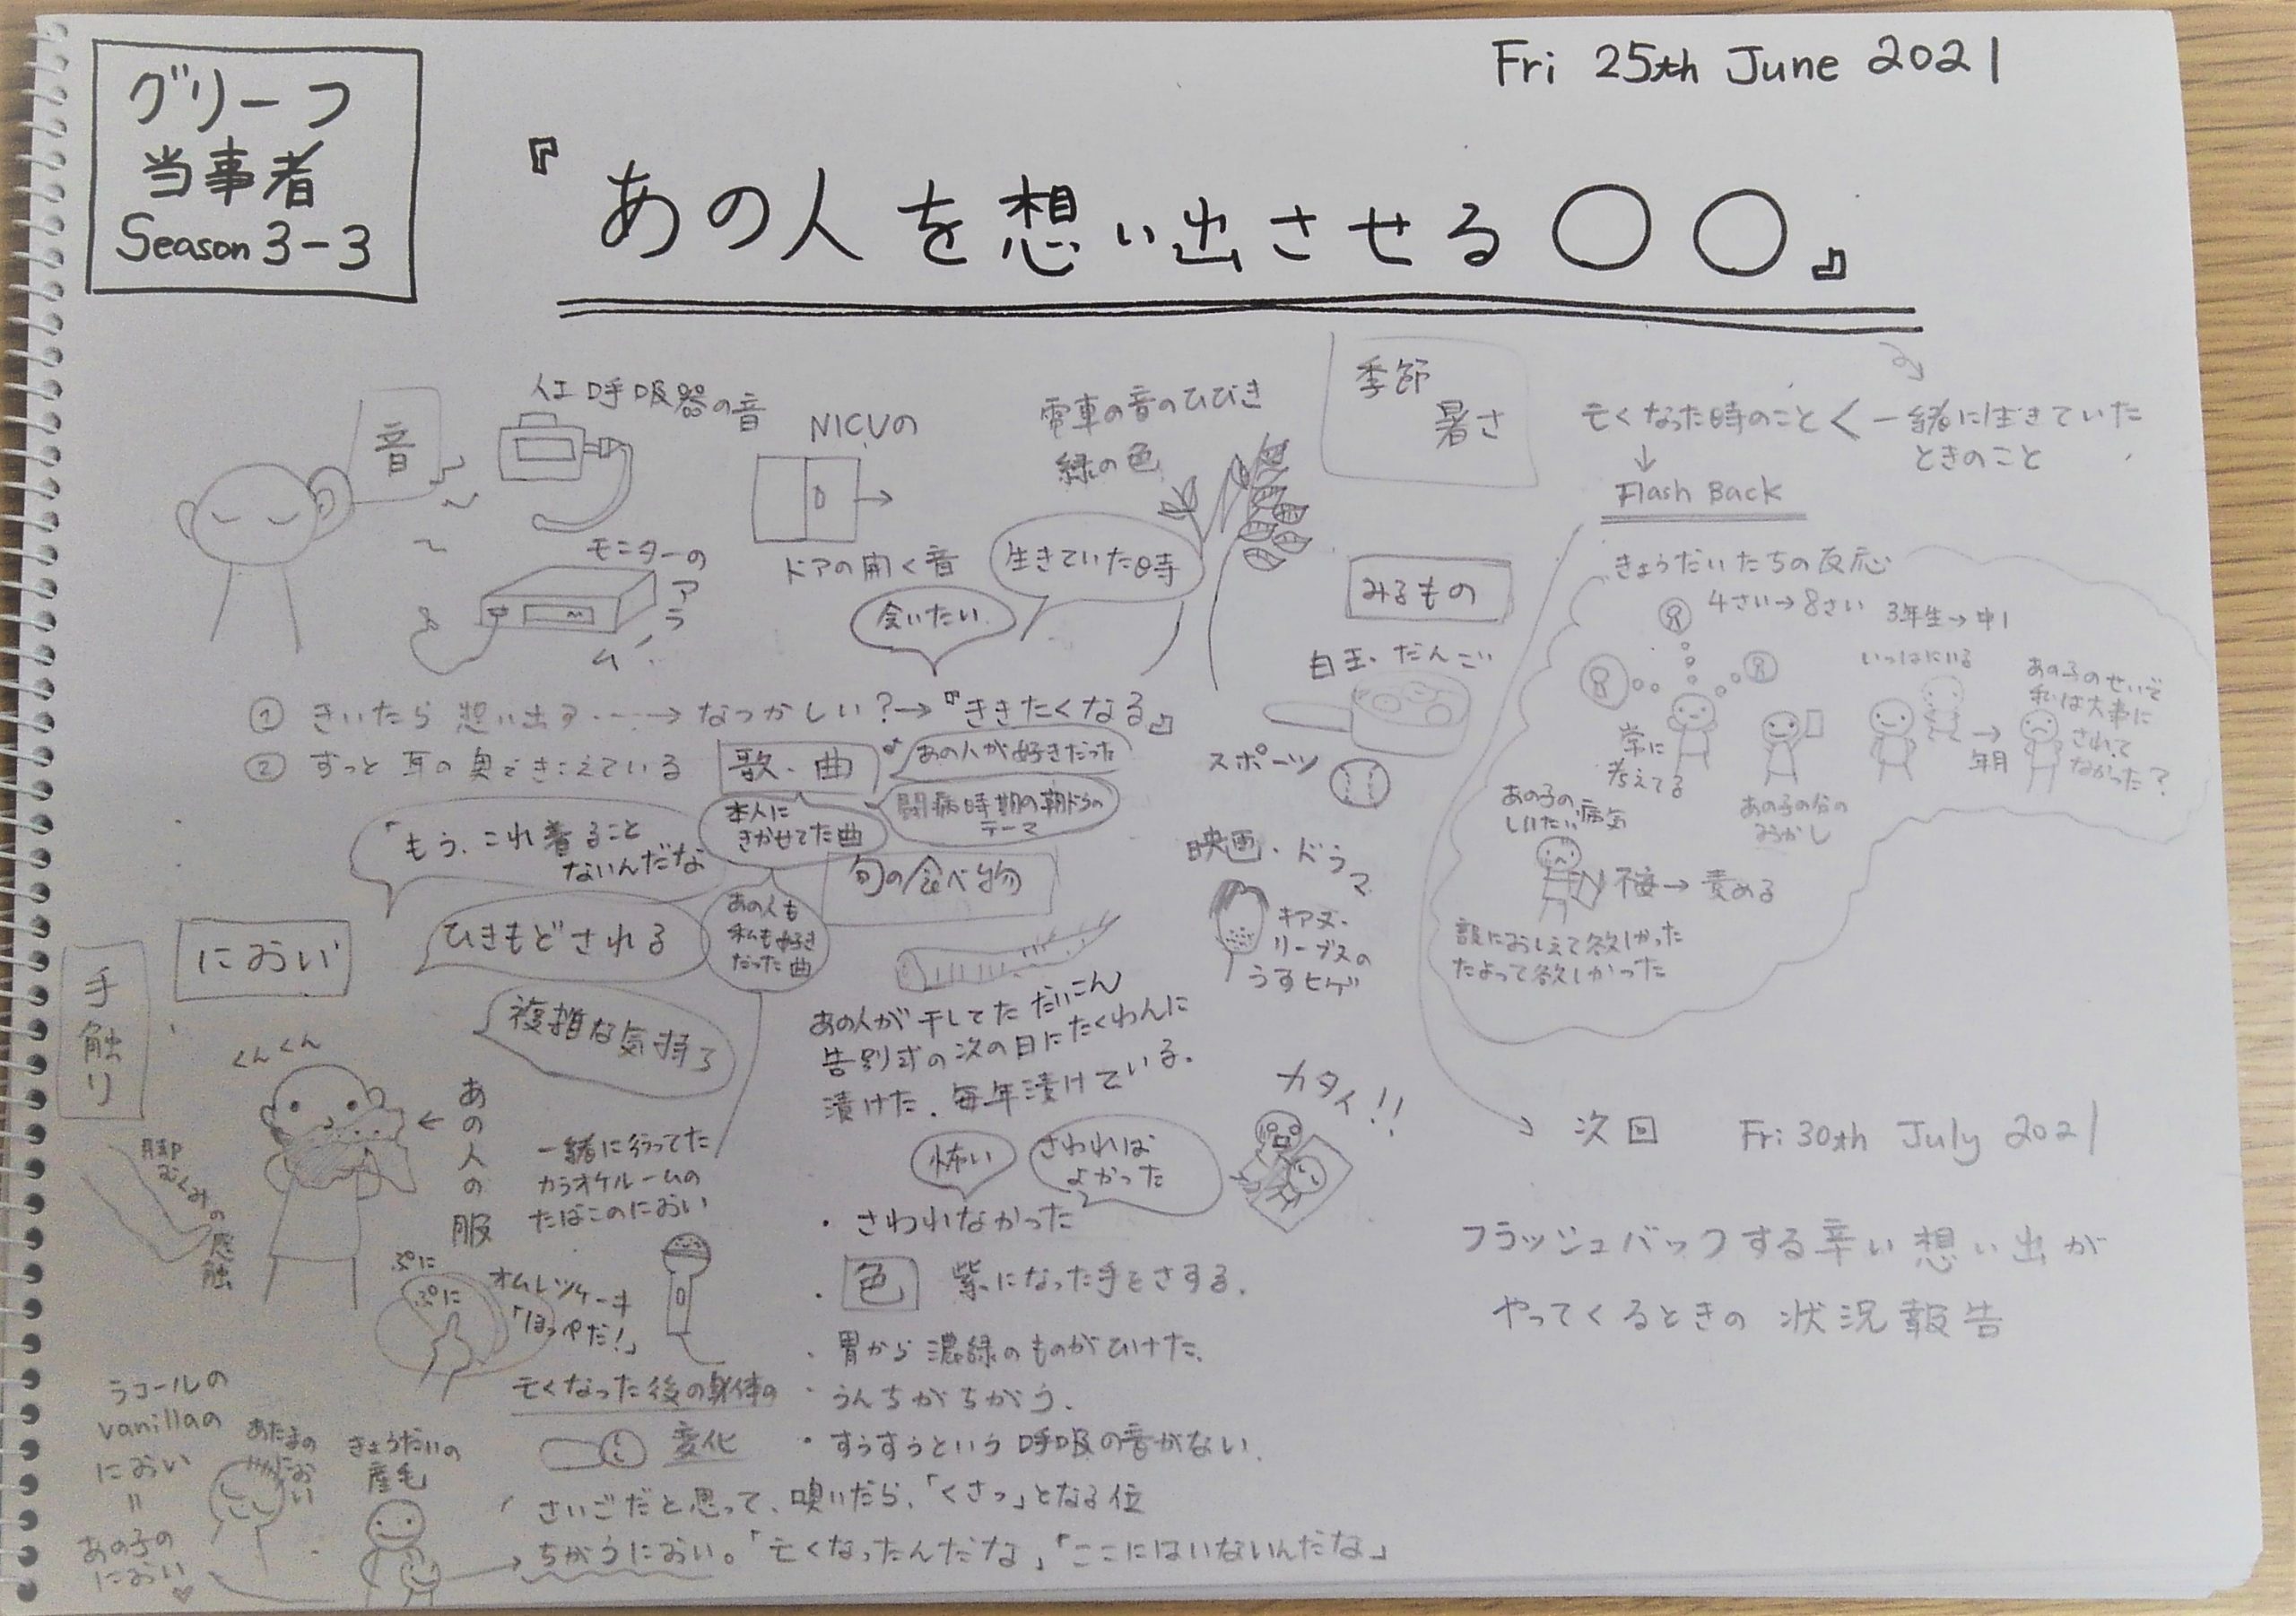 グリーフ
当事者
Season 3-3
Fri 25th June 2021
『あの人を想い出させる〇〇』
音
人工呼吸器の音
モニターの
アラーム
NICUの
ドアの開く音
電車の音のひびき
緑の色
生きていた時
会いたい
季節
暑さ
亡くなった時のこと＜一緒に生きていた
ときのこと
↓
Flash Back
① きいたら想い出す…→なつかしい？→『ききたくなる』
② ずっと耳の奥できこえている
歌・曲
あの人が好きだった
闘病時期の朝ドラの
テーマ
本人に
きかせてた曲
あの人も
私も好き
だった曲
みるもの
白玉・だんご
スポーツ
映画・ドラマ
キアヌ・
リーブスの
うすヒゲ
きょうだいたちの反応
4さい→8さい
3年生→中1
常に
考えてる
あの子の分の
おかし
いっしょにいる
→
年月
あの子のせいで
私は大事に
されて
なかった？
あの子の病気
→責める
誰におしえて欲しかった
たよって欲しかった
「もう、これ着ること
ないんだな
ひきもどされる
複雑な気持ち
におい
手触り
くんくん
←あの人の服
脚
むくみの感触
ぷに
ぷに
オムレツケーキ
「ほっペだ！」
一緒に行ってた
カラオケルームの
たばこのにおい
旬の食べ物
あの人が干してただいこん
告別式の次の日にたくわんに
漬けた。毎年漬けている。
カタイ!!
怖い
さわれば
よかった
・さわれなかった
・色 紫になった手をさする。
・胃から濃緑のものがひけた。
・うんちがちがう。
・すうすうという呼吸の音がない。
亡くなった後の身体の
変化
ラコールの
vanillaの
におい
＝
あの子の
におい♥
あたまの
におい
きょうだいの
産毛
さいごだと思って、嗅いだら、「くさっ」となる位
ちがうにおい。「亡くなったんだな」「ここにはいないんだな」
次回 Fri 30th July 2021
フラッシュバックする辛い想い出が
やってくるときの状況報告